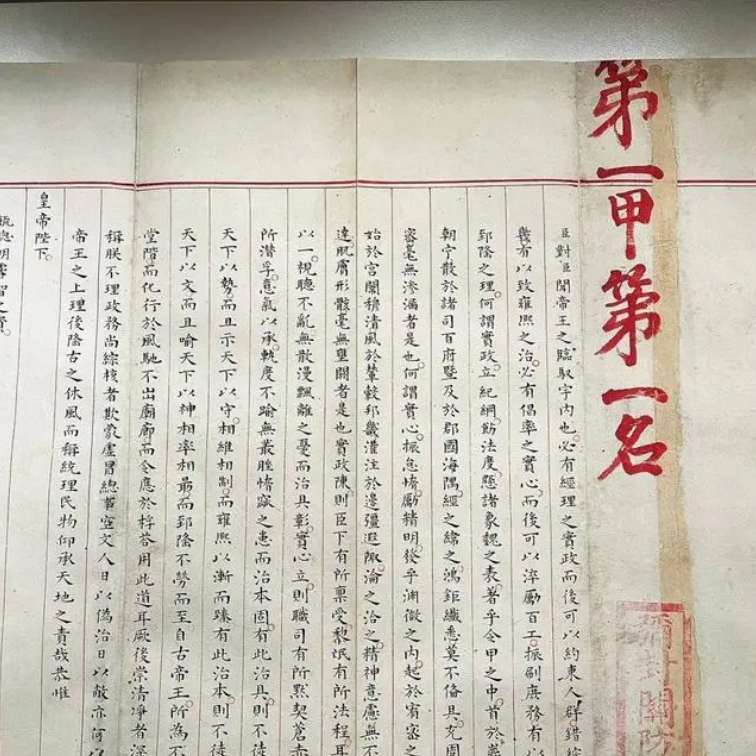 第一甲第一名
彌封關防
臣對臣聞帝王之臨馭宇內也必有經理之實政而後可以約束人群錯綜
幾有以致雍熙之治必有倡率之實心而後可以淬勵百工振刷庶務有以
郅隆之理何謂實政立紀綱飭法度懸諸象魏之表著乎令甲之中首於巖
朝寧散於諸司百府暨及於郡國海隅經之緯之鴻鉅纖悉莫不備具充周
密毫無滲漏者是也何謂實心振怠惰勵精明發乎淵微之內起於宥密之
始於宮闈穆清風於輦轂邦畿灌注於邊疆遐陬淪之洽之精神意慮無不
達肌膚形骸毫無壅閼者是也實政陳則臣下有所稟受黎氓有所法程耳
以一視聽不亂無散漫飄離之憂而治具彰實心立則職司有所默契蒼赤
所潛孚意氣以承軌度不踰無叢脞惰窳之患而治本固有此治具則不徒
天下以勢而且示天下以守相維相制而雍熙以漸而臻有此治本則不徒
天下以文而且喻天下以神相率相勗而郅隆不勞而至自古帝王所為不
堂階而化行於風馳不出廟廊而令應於桴荅用此道耳厥後崇清凈者深
稱朕不理政務尚綜核者欺蒙虛冒總事空文人日以偽治日以敝亦何以
帝王之上理後隆古之休風而稱統理民物仰承天地之責哉恭惟
皇帝陛下